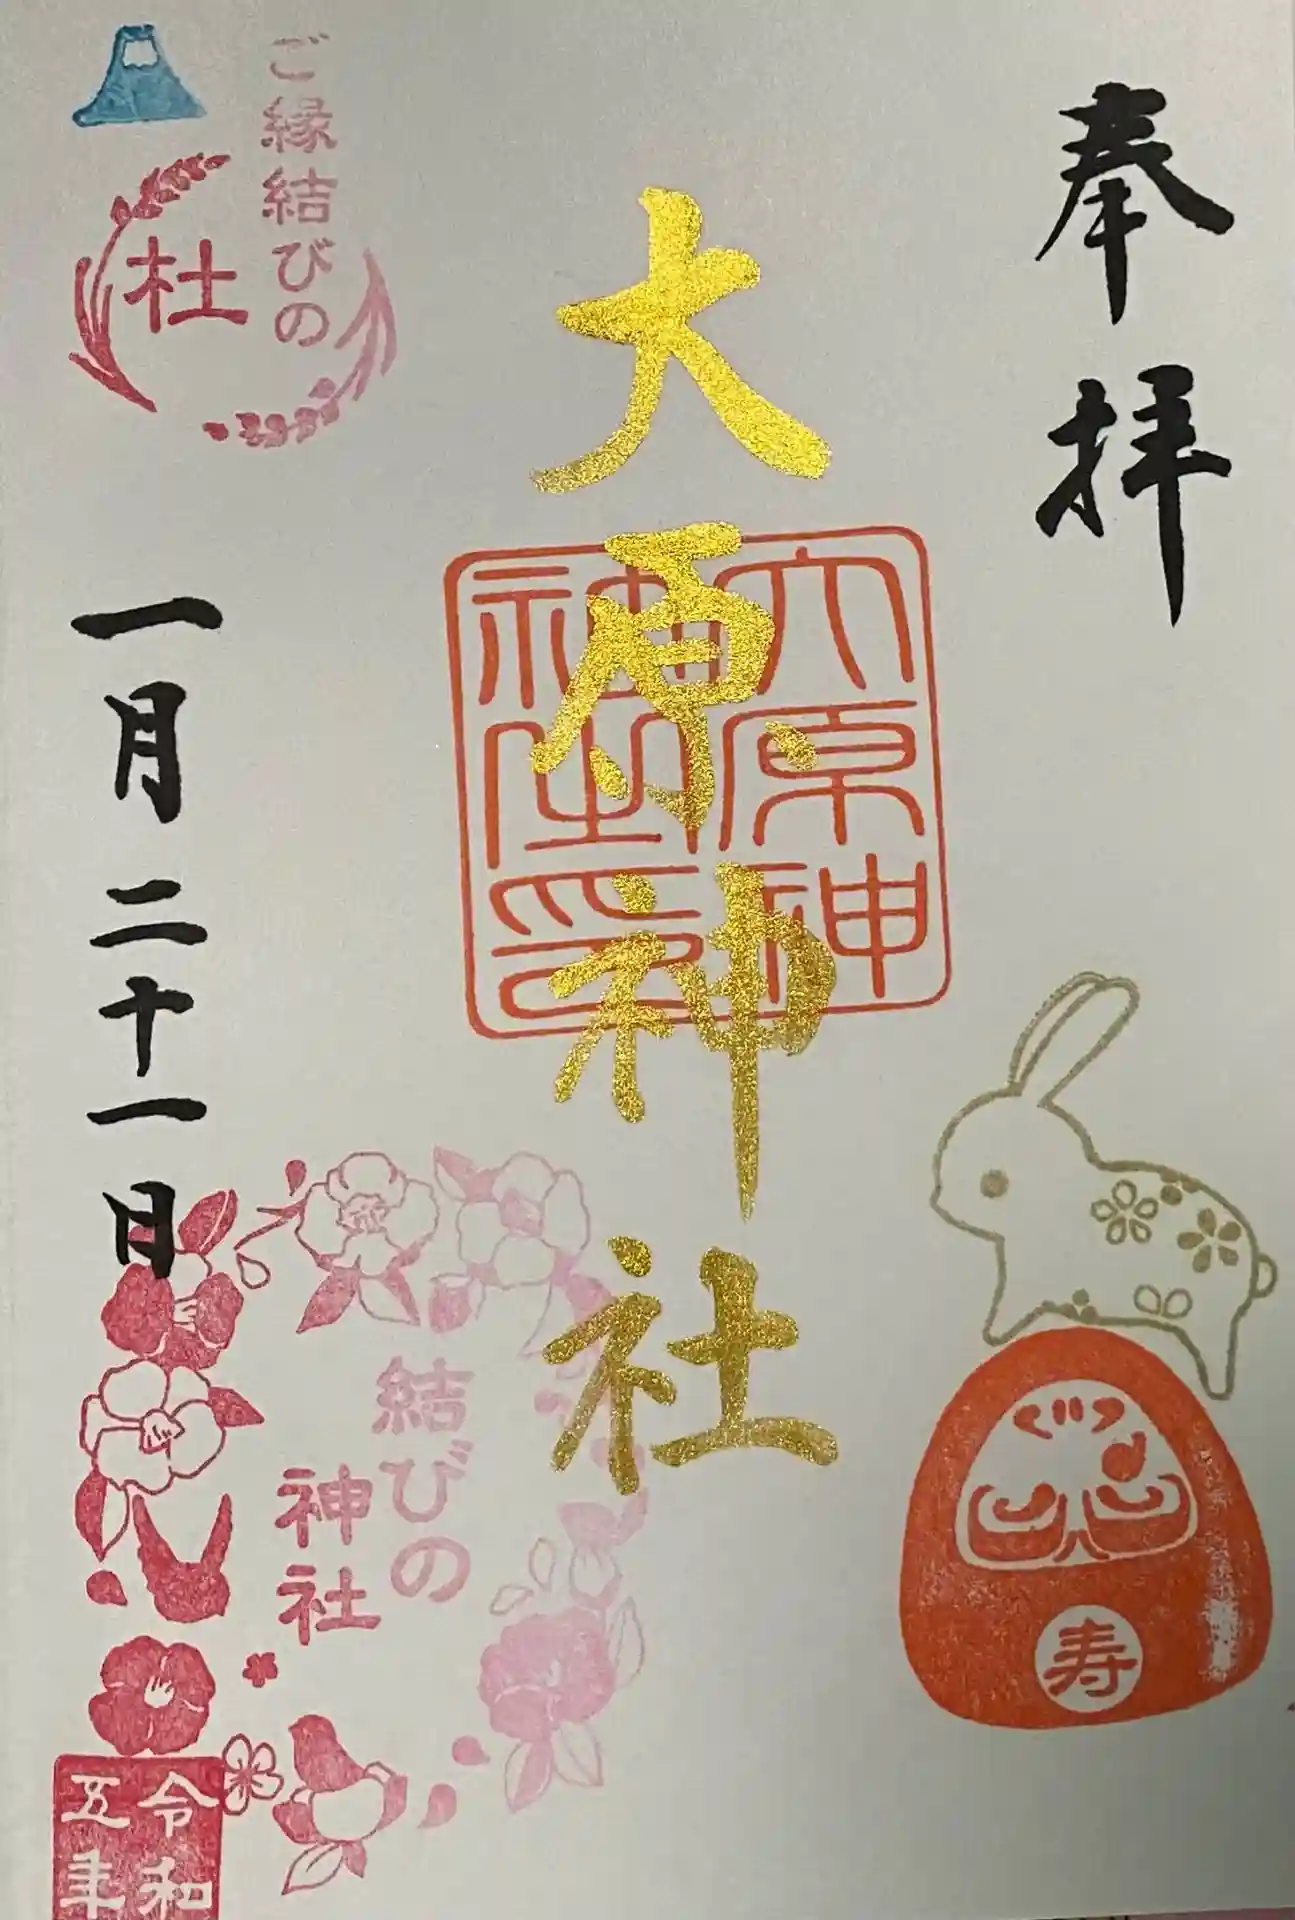 奉拝
大原神社
大原神
神社印
寿
ご縁結びの
杜
一月二十一日
結びの
神社
令和
五年